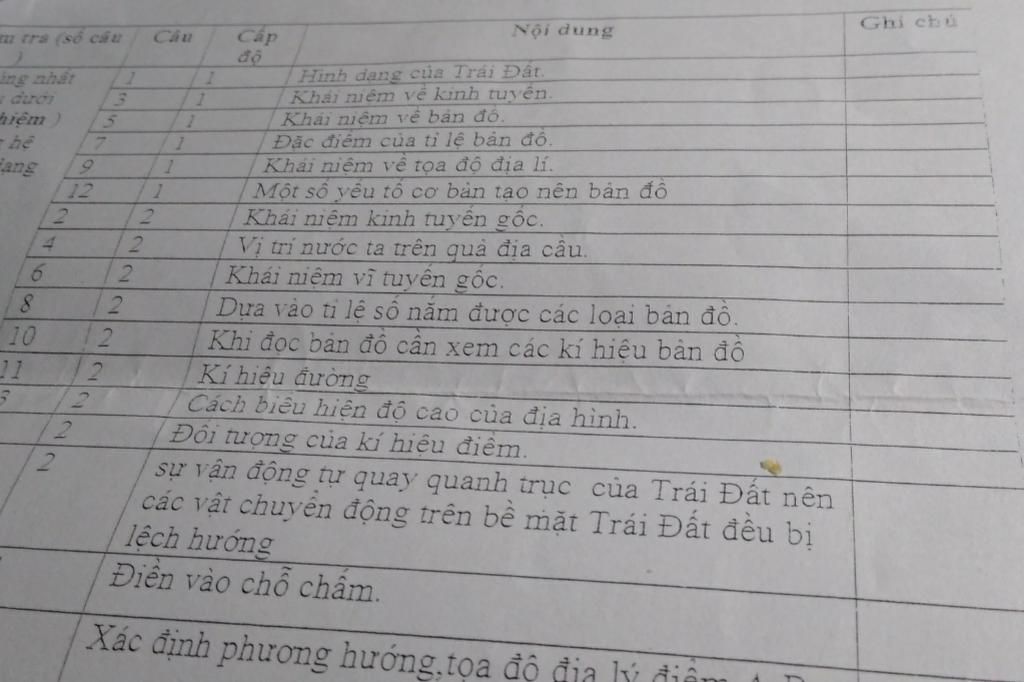 tra (số câu Câu Cấp độ Nội dung Ghi chú
)
nhất 1 1 Hình dạng của Trái Đất.
dưới 3 1 Khái niệm về kinh tuyến.
) 5 1 Khái niệm về bản đồ.
hệ 7 1 Đặc điểm của tỉ lệ bản đồ.
9 1 Khái niệm về tọa độ địa lí.
12 1 Một số yếu tố cơ bản tạo nên bản đồ
2 2 Khái niệm kinh tuyến gốc.
4 2 Vị trí nước ta trên quả địa cầu.
6 2 Khái niệm vĩ tuyến gốc.
8 2 Dựa vào tỉ lệ số nắm được các loại bản đồ.
10 2 Khi đọc bản đồ cần xem các kí hiệu bản đồ
11 2 Kí hiệu đường
3 2 Cách biểu hiện độ cao của địa hình.
2 Đối tượng của kí hiệu điểm.
2 sự vận động tự quay quanh trục của Trái Đất nên
các vật chuyển động trên bề mặt Trái Đất đều bị
lệch hướng
Điền vào chỗ chấm.
Xác định phương hướng,tọa độ địa lý điểm